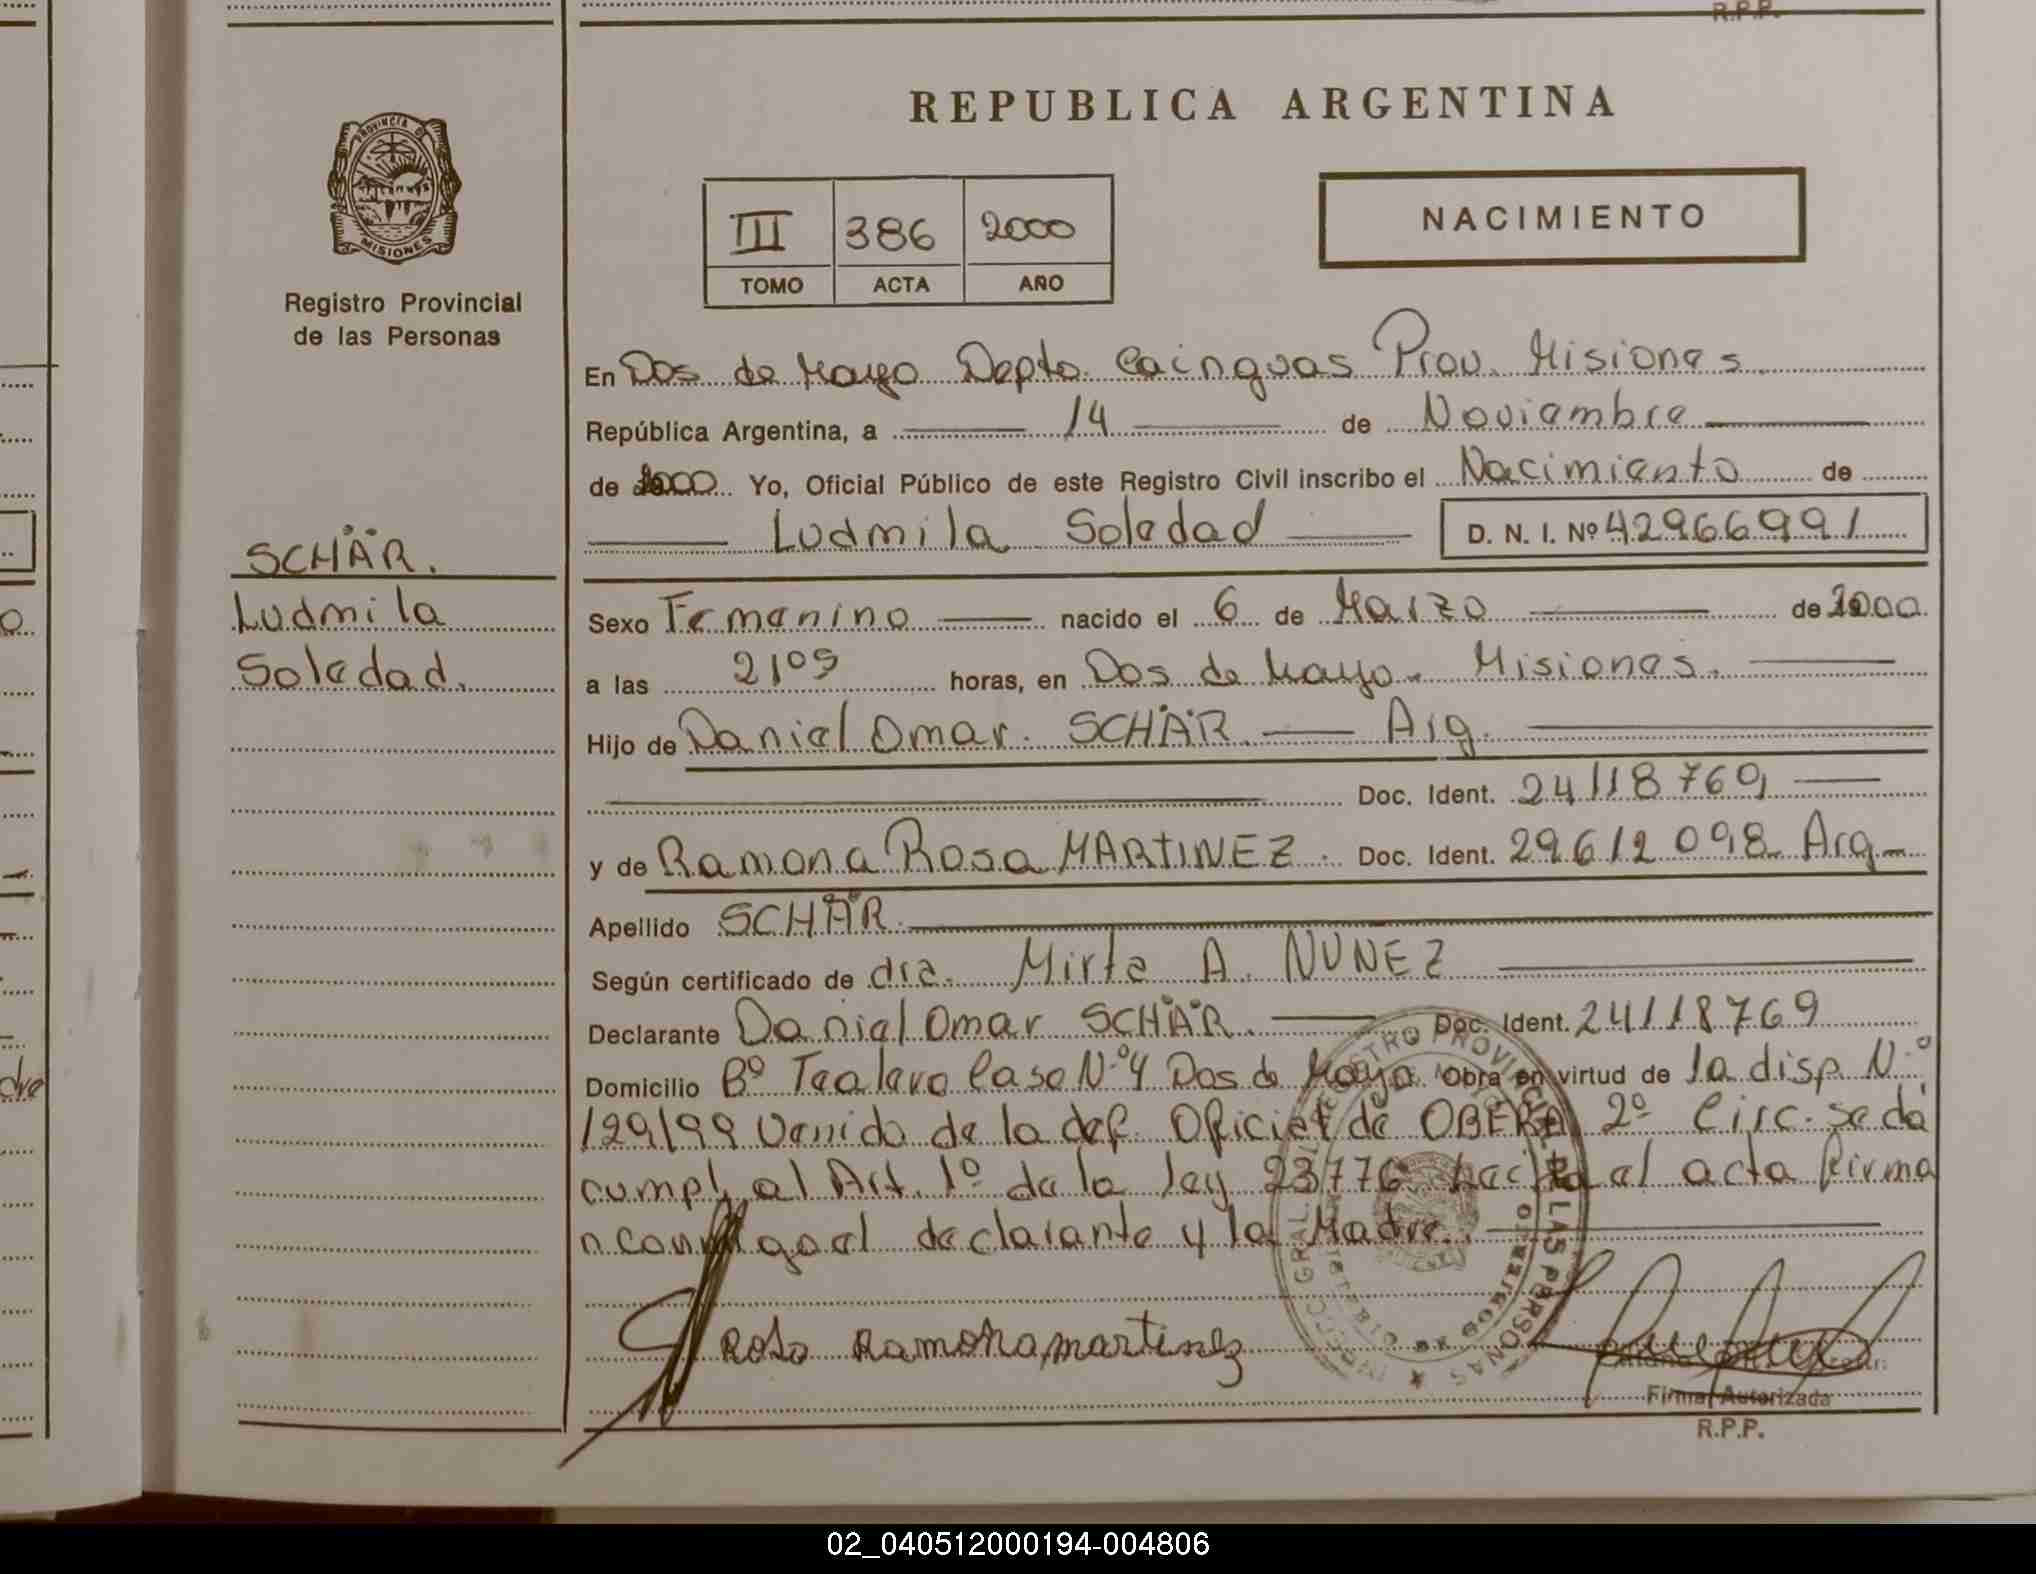 R.P.P.
REPUBLICA ARGENTINA
PROVINCIA DE
MISIONES
Registro Provincial
de las Personas
III 386 2000
TOMO ACTA AÑO
NACIMIENTO
En Dos de Mayo Depto. Cainguas Prov. Misiones
República Argentina, a 14 de Noviembre
de 2000 Yo, Oficial Público de este Registro Civil inscribo el Nacimiento de
Ludmila Soledad D. N. I. Nº 42966991
SCHÄR.
Ludmila
Soledad.
Sexo Femenino nacido el 6 de Marzo de 2000
a las 21⁰⁵ horas, en Dos de Mayo. Misiones.
Hijo de Daniel Omar SCHÄR Arg.
Doc. Ident. 24118769
y de Ramona Rosa MARTINEZ. Doc. Ident. 29612098 Arg
Apellido SCHÄR
Según certificado de dra. Mirta A. NUNEZ
Declarante Daniel Omar SCHÄR. Doc. Ident. 24118769
Domicilio Bº Tealero Casa Nº4 Dos de Mayo Obra en virtud de la disp. Nº
129/99 Venida de la def. Oficial de OBERA 2º Circ. se dá
cumpl. al Art. 1º de la ley 23776 hecha el acta firma
n conmigo el declarante y la Madre.
Rosa Ramona martinez
REGISTRO PROVINCIAL DE LAS PERSONAS
Firma Autorizada
R.P.P.
02_040512000194-004806